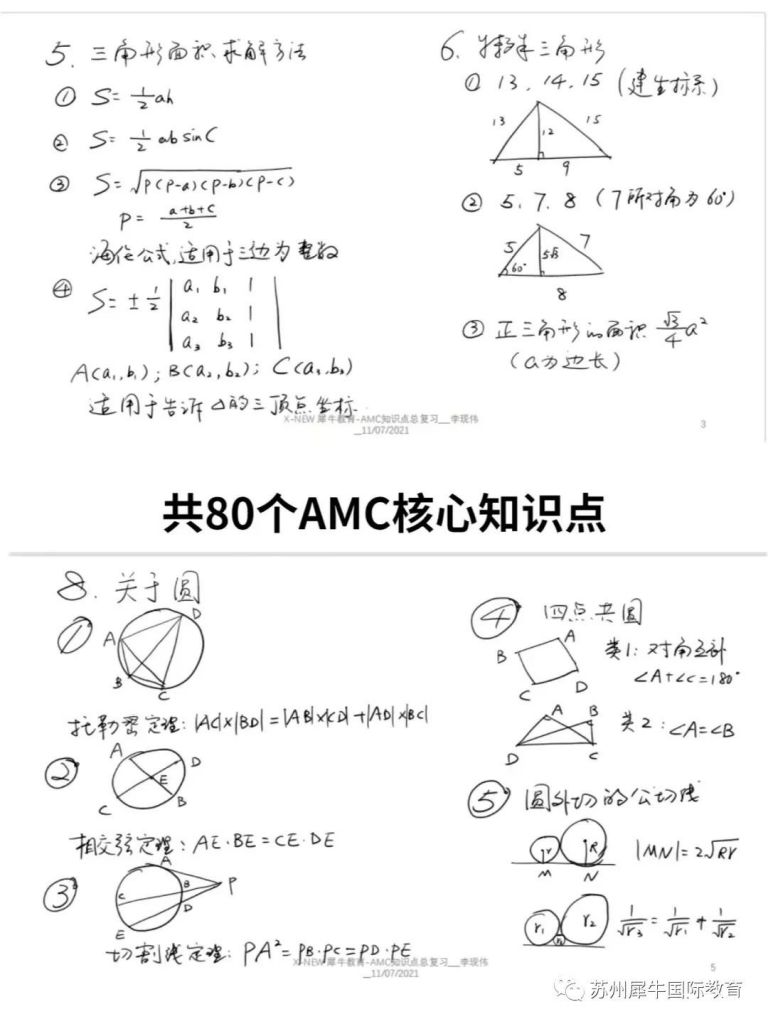 5. 三角形面积求解方法
① S=½ah
② S=½absinC
③ S=√P(P-a)(P-b)(P-c)
P=(a+b+c)/2
海伦公式,适用于三边为整数
④ S=±½ | a₁ b₁ 1
a₂ b₂ 1
a₃ b₃ 1 |
A(a₁,b₁); B(a₂,b₂); C(a₃,b₃)
适用于告诉△的三顶点坐标.
6. 特殊三角形
① 13, 14, 15 (建坐标系)
13 12 15
5 9
② 5, 7, 8 (7所对角为60°)
5 5√3 7
60°
8
③ 正三角形的面积 √3/4 a²
(a为边长)
X-NEW 犀牛教育-AMC知识点总复习__李现伟
_11/07/2021
3
共80个AMC核心知识点
8. 关于圆
①
A D
B C
托勒密定理: |AC|×|BD|=|AB|×|CD|+|AD|×|BC|
②
A D
E
C B
相交弦定理: AE·BE=CE·DE
③
A
B P
C D
E
切割线定理: PA²=PB·PC=PD·PE
④ 四点共圆
A
B
D
C
类1: 对角互补
∠A+∠C=180°
A B
D C
类2: ∠A=∠B
⑤ 圆外切的公切线
r R
M N
|MN|=2√Rr
r₁ r₂
1/√r₃=1/√r₁+1/√r₂
X-NEW 犀牛教育-AMC知识点总复习__李现伟
_11/07/2021
5
苏州犀牛国际教育